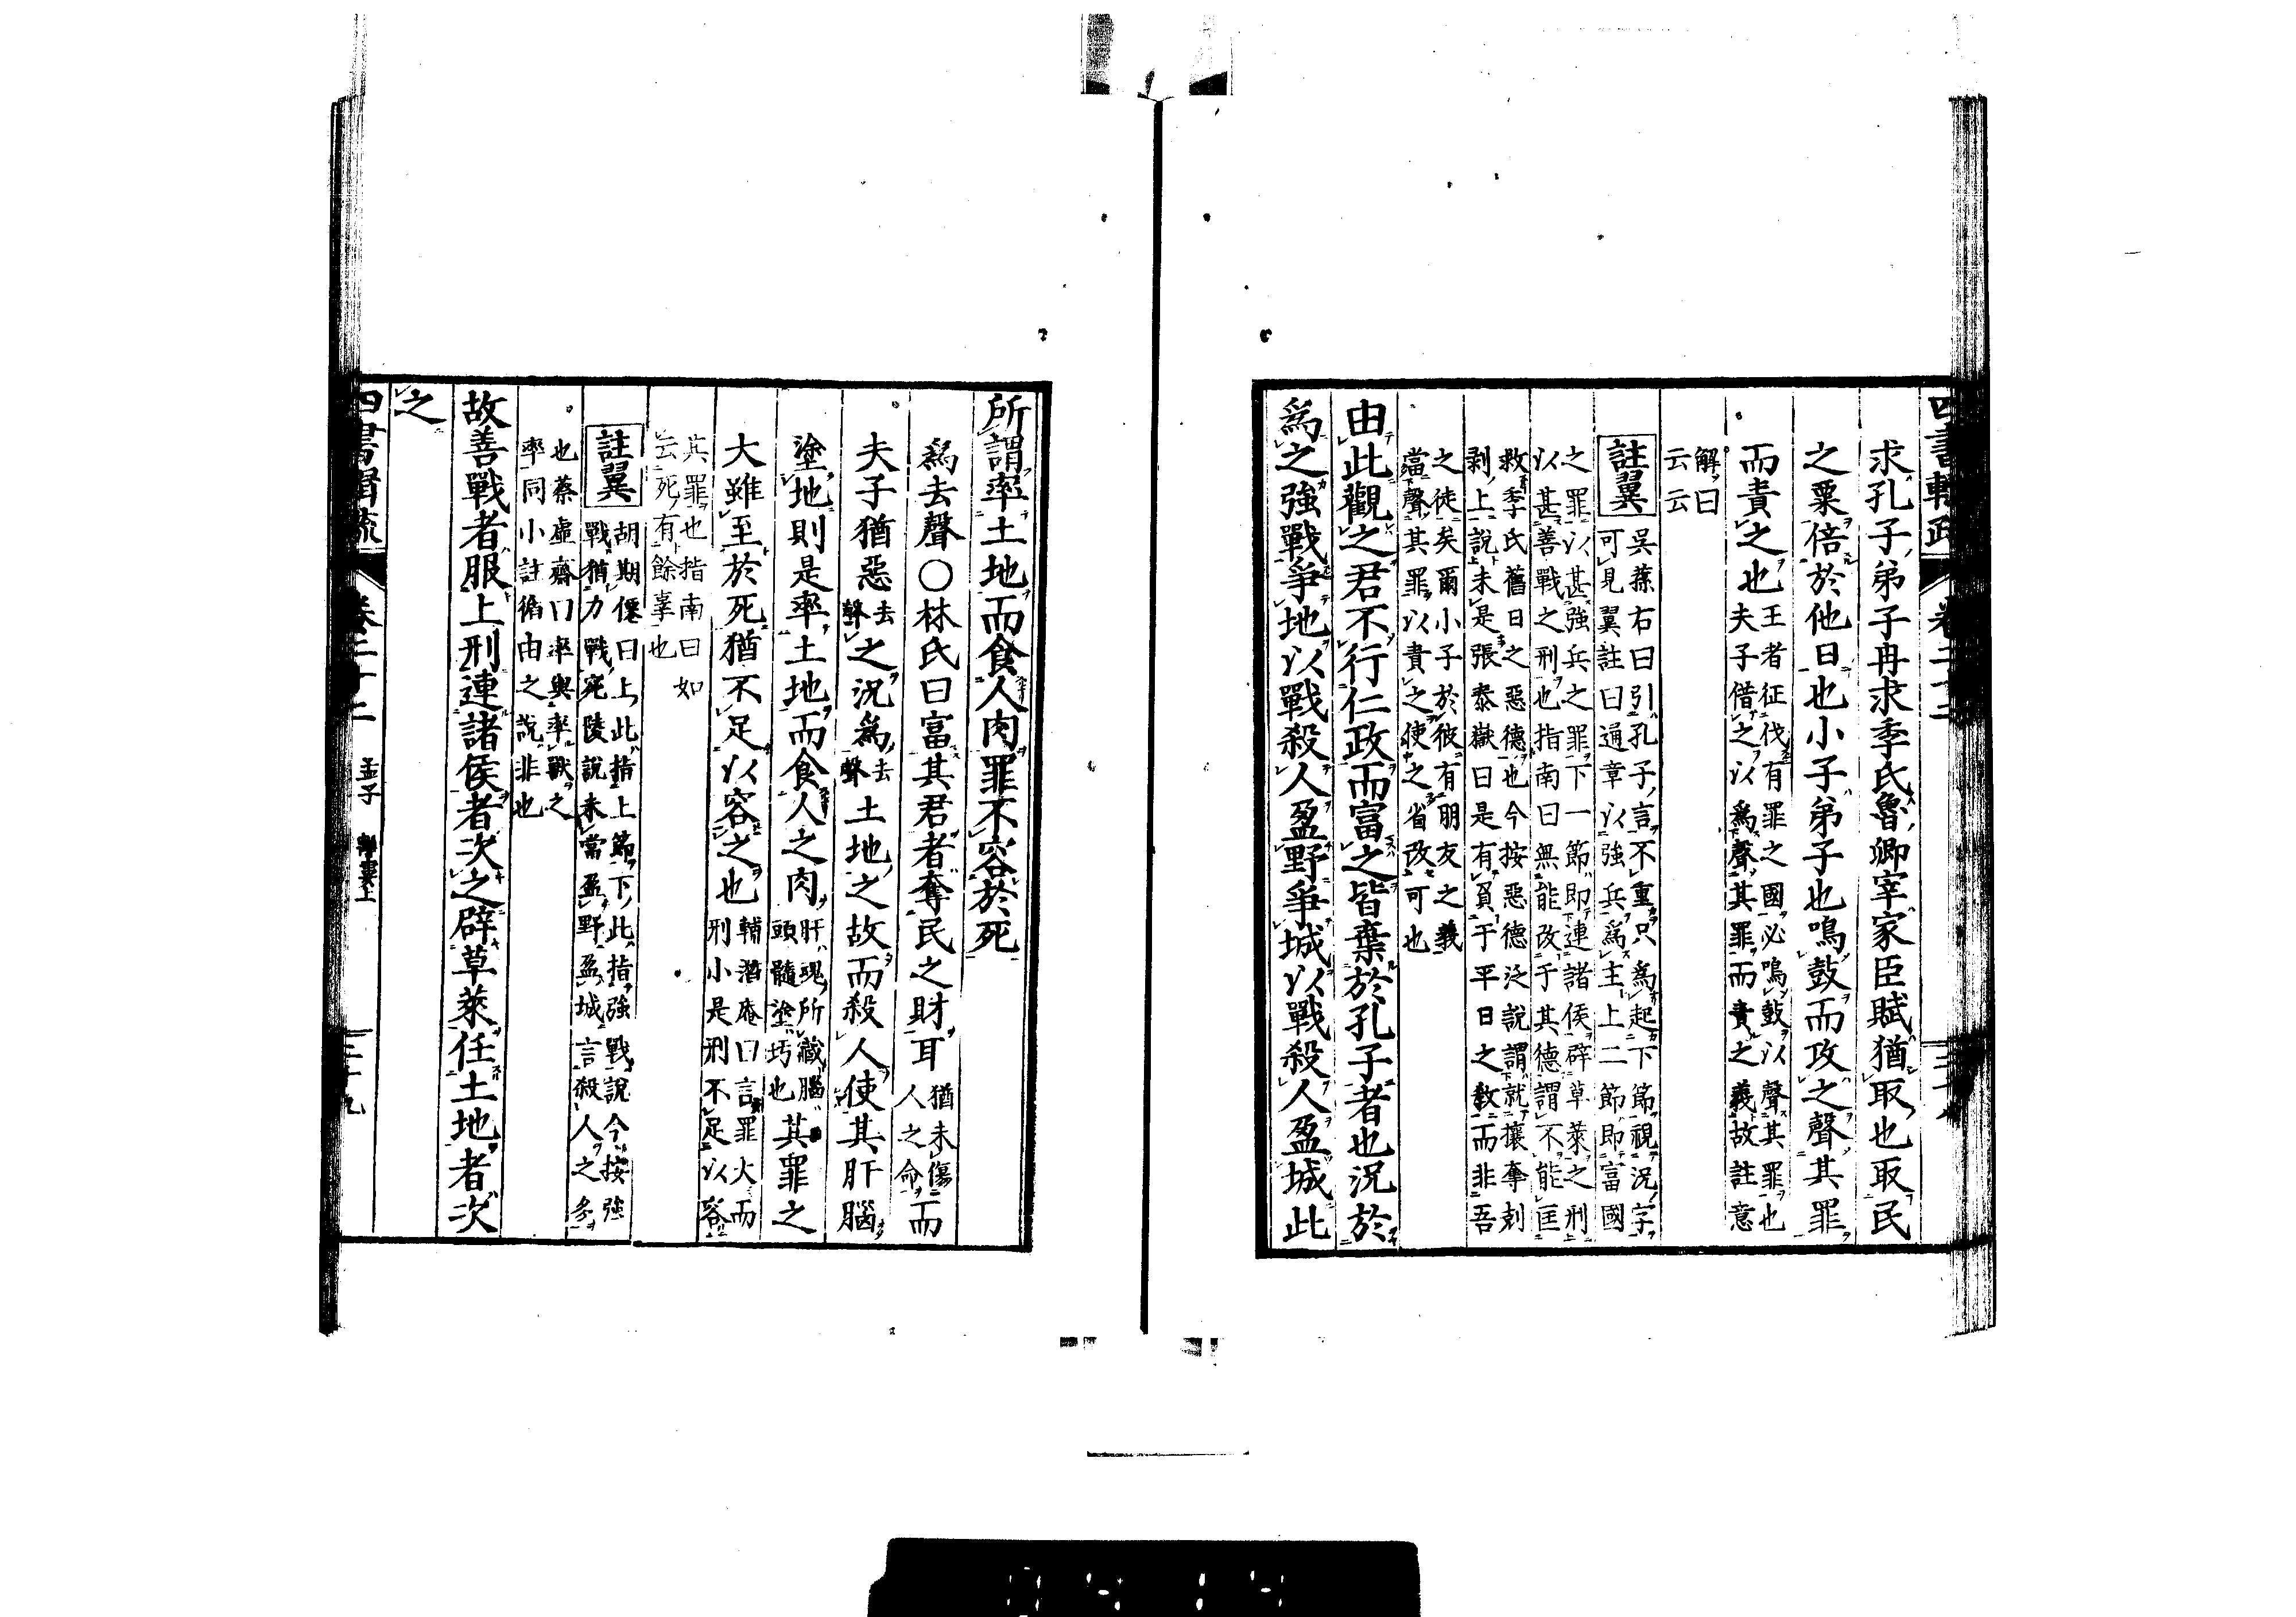 四書輯疏 卷二十二
求孔子弟子冉求季氏魯卿宰家臣賦猶取也取民
之粟倍於他日也小子弟子也鳴鼓而攻之聲其罪
而責之也王者征伐有罪之國必鳴鼓以聲其罪也
夫子借之以爲聲其罪而責之義故註意
解曰
云云
註翼
吳蓀右曰引孔子言不重只爲起下節視況字
可見翼註曰通章以強兵爲主上二節卽富國
之罪以甚強兵之罪下一節卽連諸侯辟草萊之刑
以甚善戰之刑也指南曰無能改于其德謂不能匡
救季氏舊日之惡德也今按惡德泛說謂就攘奪剋
剥上說未是張泰嶽曰是有負于平日之敎而非吾
之徒矣爾小子於彼有朋友之義
當聲其罪以責之使之省改可也
由此觀之君不行仁政而富之皆棄於孔子者也況於
爲之強戰爭地以戰殺人盈野爭城以戰殺人盈城此
所謂率土地而食人肉罪不容於死
爲去聲○林氏曰富其君者奪民之財耳猶未傷人之命而
夫子猶惡去聲之況爲去聲土地之故而殺人使其肝腦
塗地則是率土地而食人之肉肝魂所藏腦頭髓塗圬也其罪之
大雖至於死猶不足以容之也輔潛庵曰言罪大而
刑小是刑不足以容
其罪也指南曰如
云死有餘辜也
註翼
胡期僊曰上此指上節下此指強戰說今按強
戰猶力戰宛陵說未當盈野盈城言殺人之多
也蔡虛齋曰率與率獸之
率同小註循由之說非也
故善戰者服上刑連諸侯者次之辟草萊任土地者次
之
四書輯疏 卷二十二 孟子 離婁上 二十九